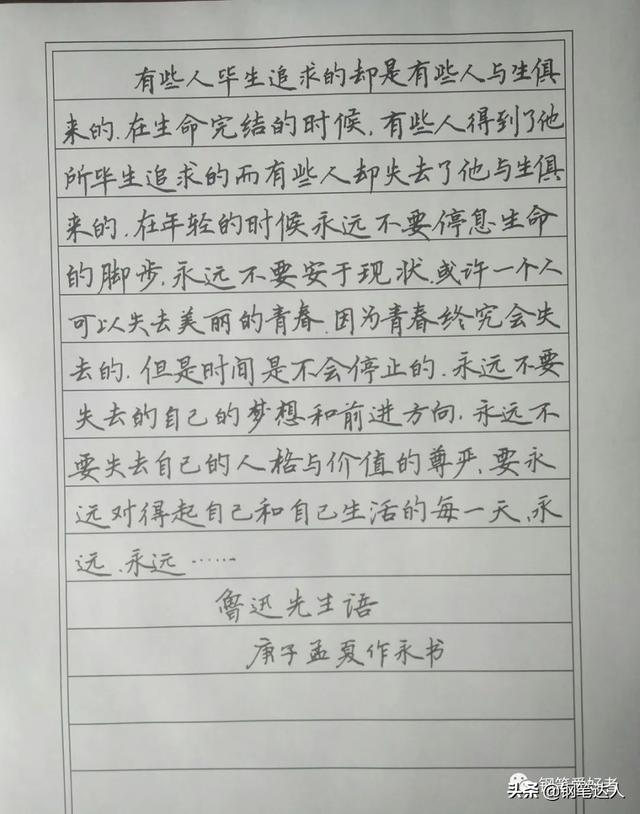 有些人毕生追求的却是有些人与生俱
来的.在生命完结的时候,有些人得到了他
所毕生追求的而有些人却失去了他与生俱
来的.在年轻的时候永远不要停息生命
的脚步,永远不要安于现状.或许一个人
可以失去美丽的青春.因为青春终究会失
去的.但是时间是不会停止的.永远不要
失去的自己的梦想和前进方向.永远不
要失去自己的人格与价值的尊严,要永
远对得起自己和自己生活的每一天、永
远、永远……
鲁迅先生语
庚子孟夏作永书
钢笔爱好者
头条@钢笔达人